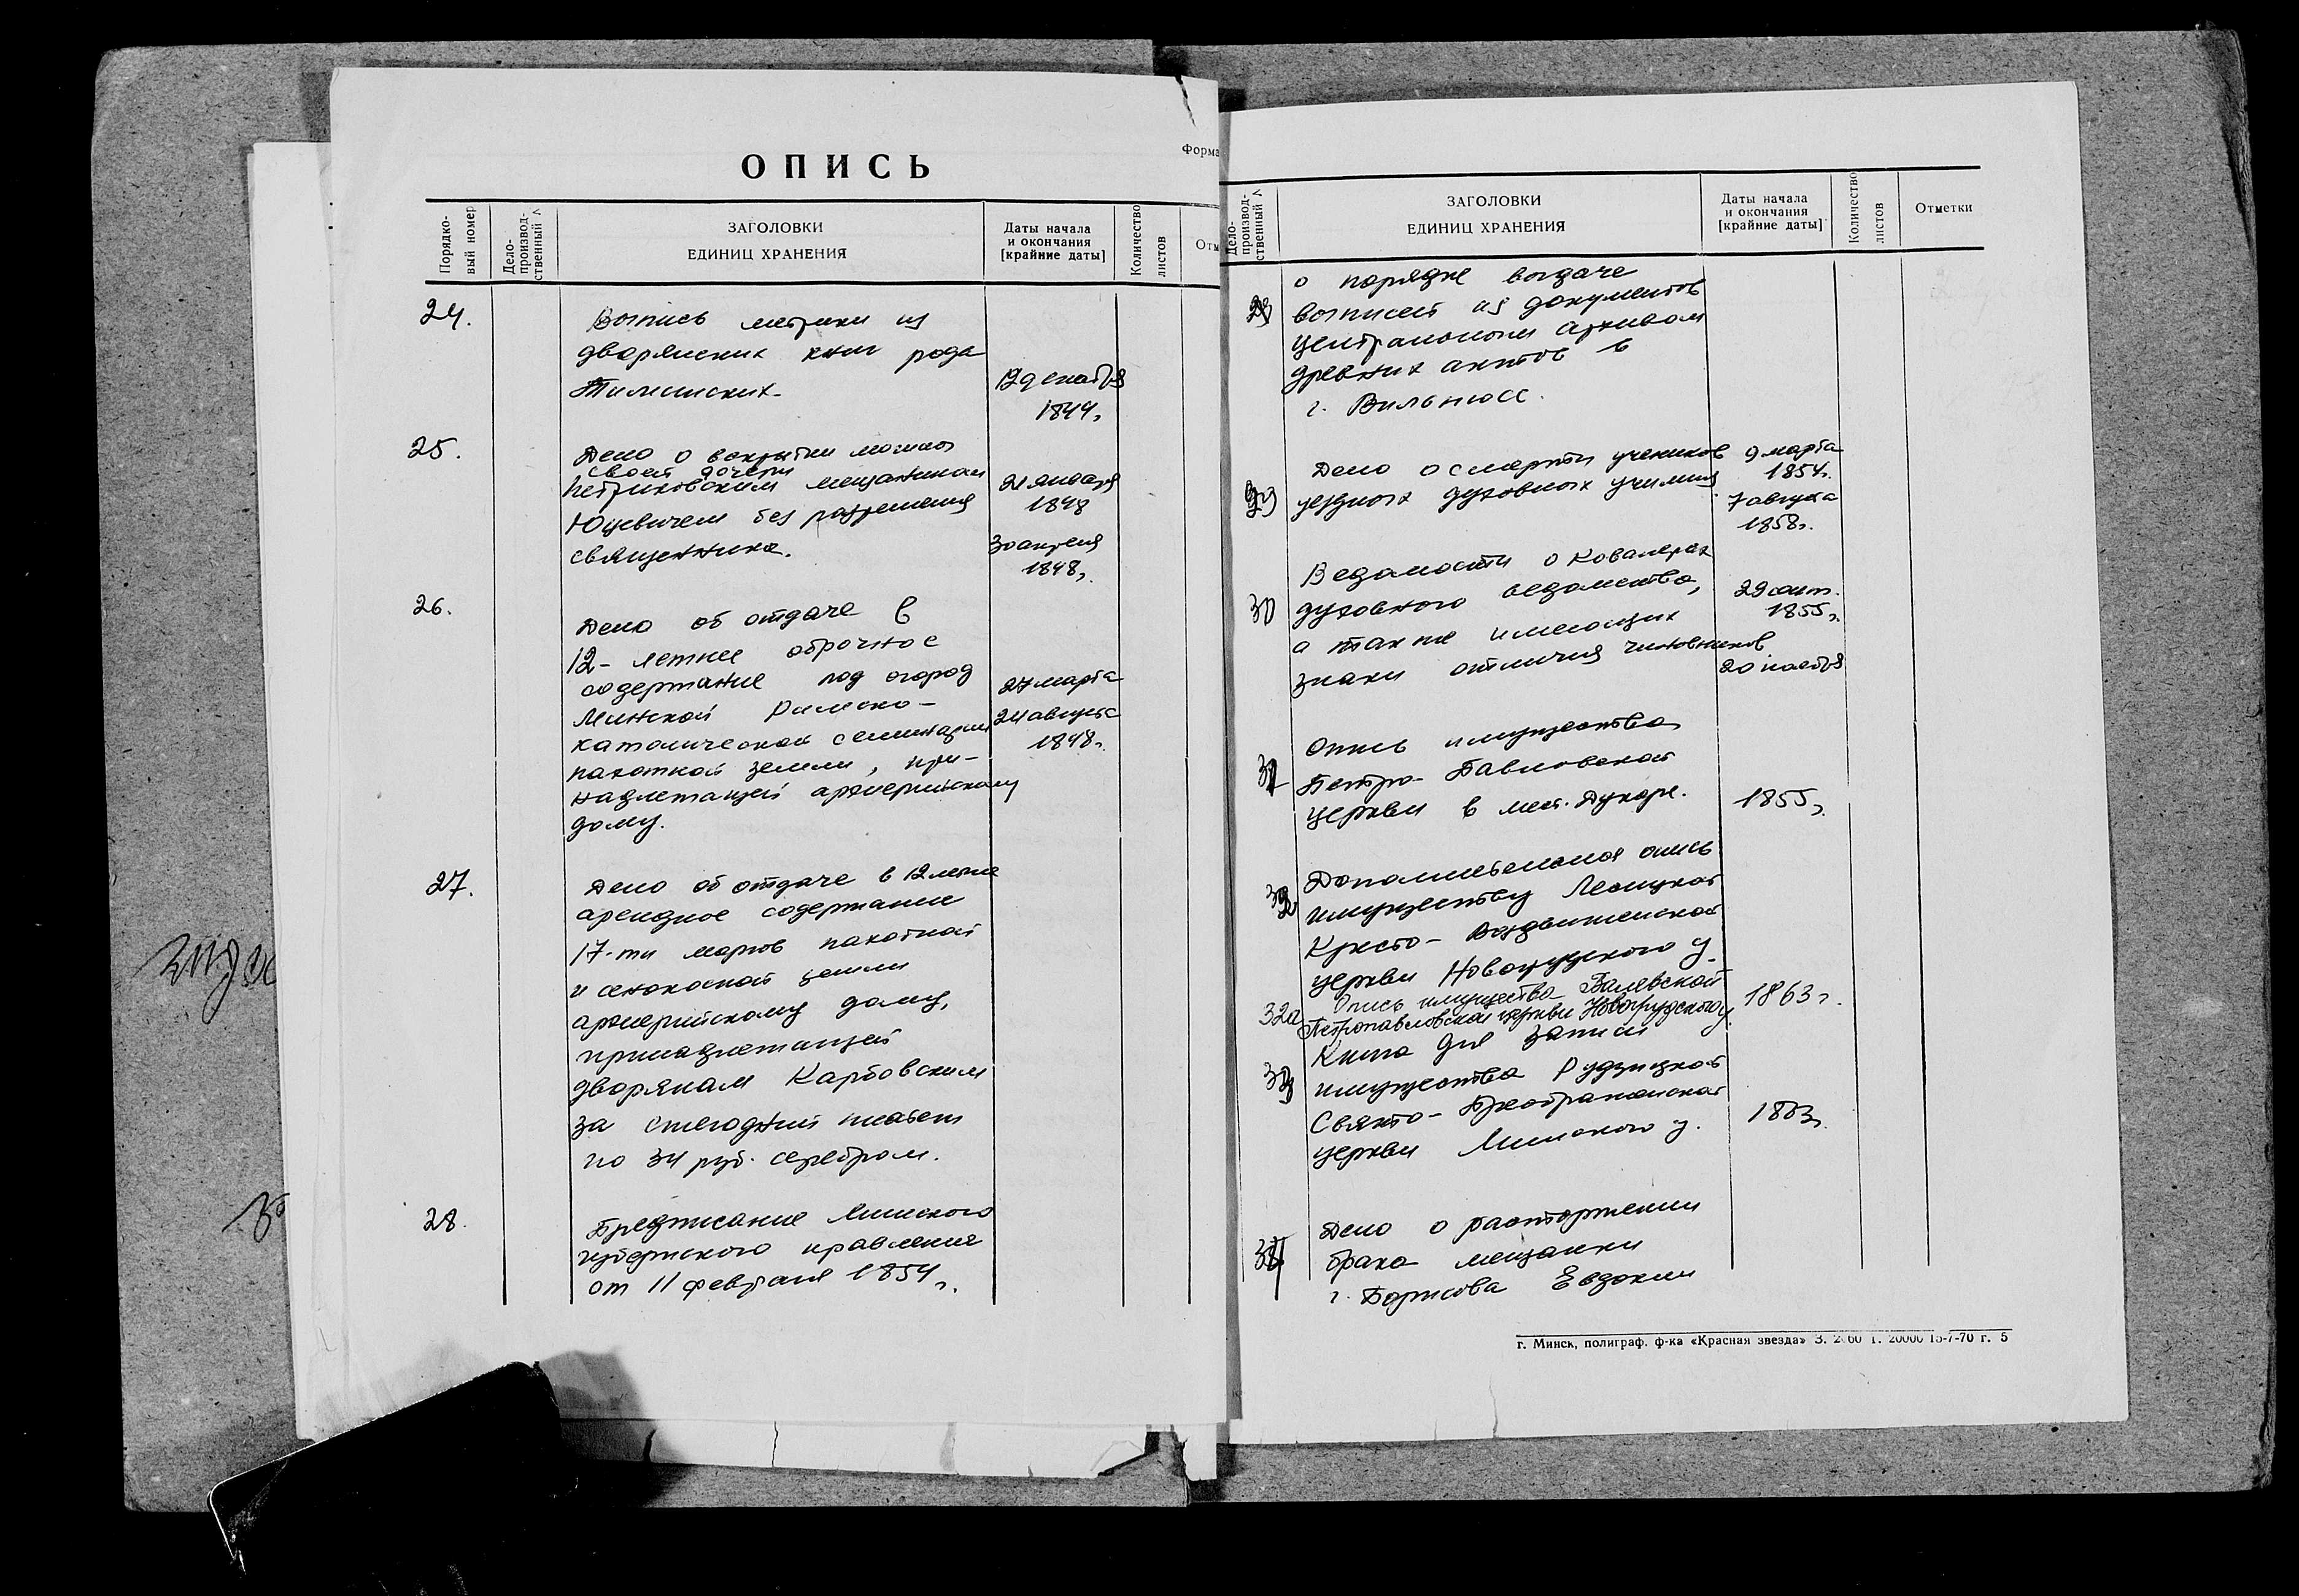 Форма
ОПИСЬ
Порядко-
вый номер
Дело-
производ-
ственный
ЗАГОЛОВКИ
ЕДИНИЦ ХРАНЕНИЯ
Даты начала
и окончания
[крайние даты]
Количество
листов
Отм
24.
Выпись метрики из
дворянских книг рода
12 декабря
1844г.
25.
Дело о вскрытии могилы
своей дочери
Петриковским мещанином
Юцевичем без разрешения
священника.
21 января
1848
30 апреля
1848г.
26.
Дело об отдаче в
12-летнее оброчное
содержание под огород
Минской Римско-
католической семинарии
пахотной земли, при-
надлежащей архиерейскому
дому.
27 марта
24 августа
1848г.
27.
Дело об отдаче в 12 летнее
арендное содержание
17-ти моргов пахотной
и сенокосной земли
архиерейскому дому,
принадлежащей
дворянам Карбовским
за ежегодний платеж
по 34 руб. серебром.
28.
Предписание Минского
губернского правления
от 11 февраля 1854г.
Дело-
производ-
ственный
ЗАГОЛОВКИ
ЕДИНИЦ ХРАНЕНИЯ
Даты начала
и окончания
[крайние даты]
Количество
листов
Отметки
о порядке выдаче
выписей из документов
центральным архивом
древних актов в
г. Вильнюсс.
29
Дело о смерти учеников
уездных духовных училищ.
9 марта
1854г.
7 августа
1858г.
30
Ведомости о Ковалерах
духовного ведомства,
а также имеющих
знаки отличия чиновников
29 сент.
1855г.
20 ноября
31
Опись имущества
Петро-Павловской
церкви в мест. Дукоре.
1855г.
32
Дополнительная опись
имуществу
Кресто-Воздвиженской
церкви Новогрудского у.
32а
Опись имущества Валевской
Петропавловской церкви Новогрудского у.
1863г.
33
Книга для записи
имущества Рудицкой
Свято-Преображенской
церкви Минского у.
34
Дело о расторжении
брака мещанки
г. Борисова Евдокии
г. Минск, полиграф. ф-ка «Красная звезда» З. 2060 Т. 20000 15-7-70 г. 5